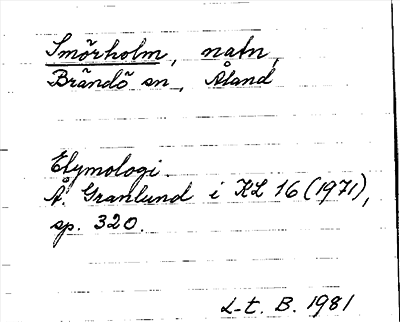 Smörholm, natn,
Brändö sn, Åland
Etymologi
Å. Granlund i KL 16 (1971),
sp. 320.
L-t. B. 1981